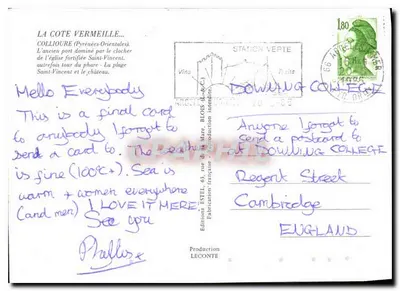 LA COTE VERMEILLE...
COLLIOURE (Pyrénées-Orientales)
L'ancien port dominé par le clocher
de l'église fortifiée Saint-Vincent,
autrefois tour du phare - La plage
Saint-Vincent et le château.
Hello Everybody
This is a final card
to anybody I forgot to
send a card to. The weather
is fine (100°C+). Sea is
warm + women everywhere
(and men) I LOVE IT HERE.
See you
Phyllis
Editions ESTEL,
Production
LECONTE
STATION VERTE
1,80
DOWNING COLLEGE
Anyone I forgot to
send a postcard to
DOWNING COLLEGE
Regent Street
Cambridge
ENGLAND